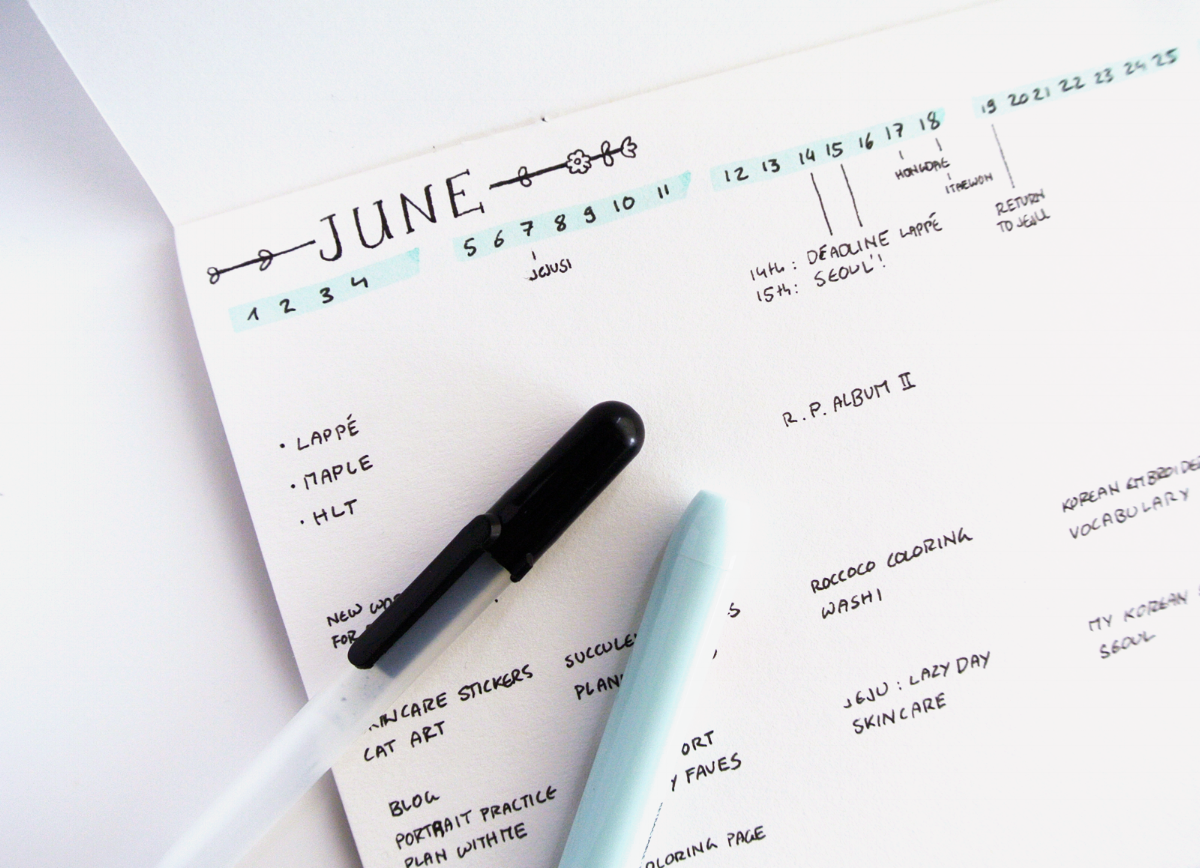 JUNE
1 2 3 4
5 6 7 8 9 10 11
12 13 14 15 16 17 18
19 20 21 22 23 24 25
JEJUSI
14th: DEADLINE LAPPÉ
15th: SEOUL!
HONGDAE
ITAEWON
RETURN
TO JEJU
• LAPPÉ
• MAPLE
• HLT
R.P. ALBUM II
NEW
FOR
SKINCARE STICKERS
CAT ART
BLOG
PORTRAIT PRACTICE
PLAN WITH ME
PLAN
ORT
Y FAVES
OLORING PAGE
ROCCOCO COLORING
WASHI
JEJU: LAZY DAY
SKINCARE
KOREAN
VOCABULARY
MY KOREAN
SEOUL